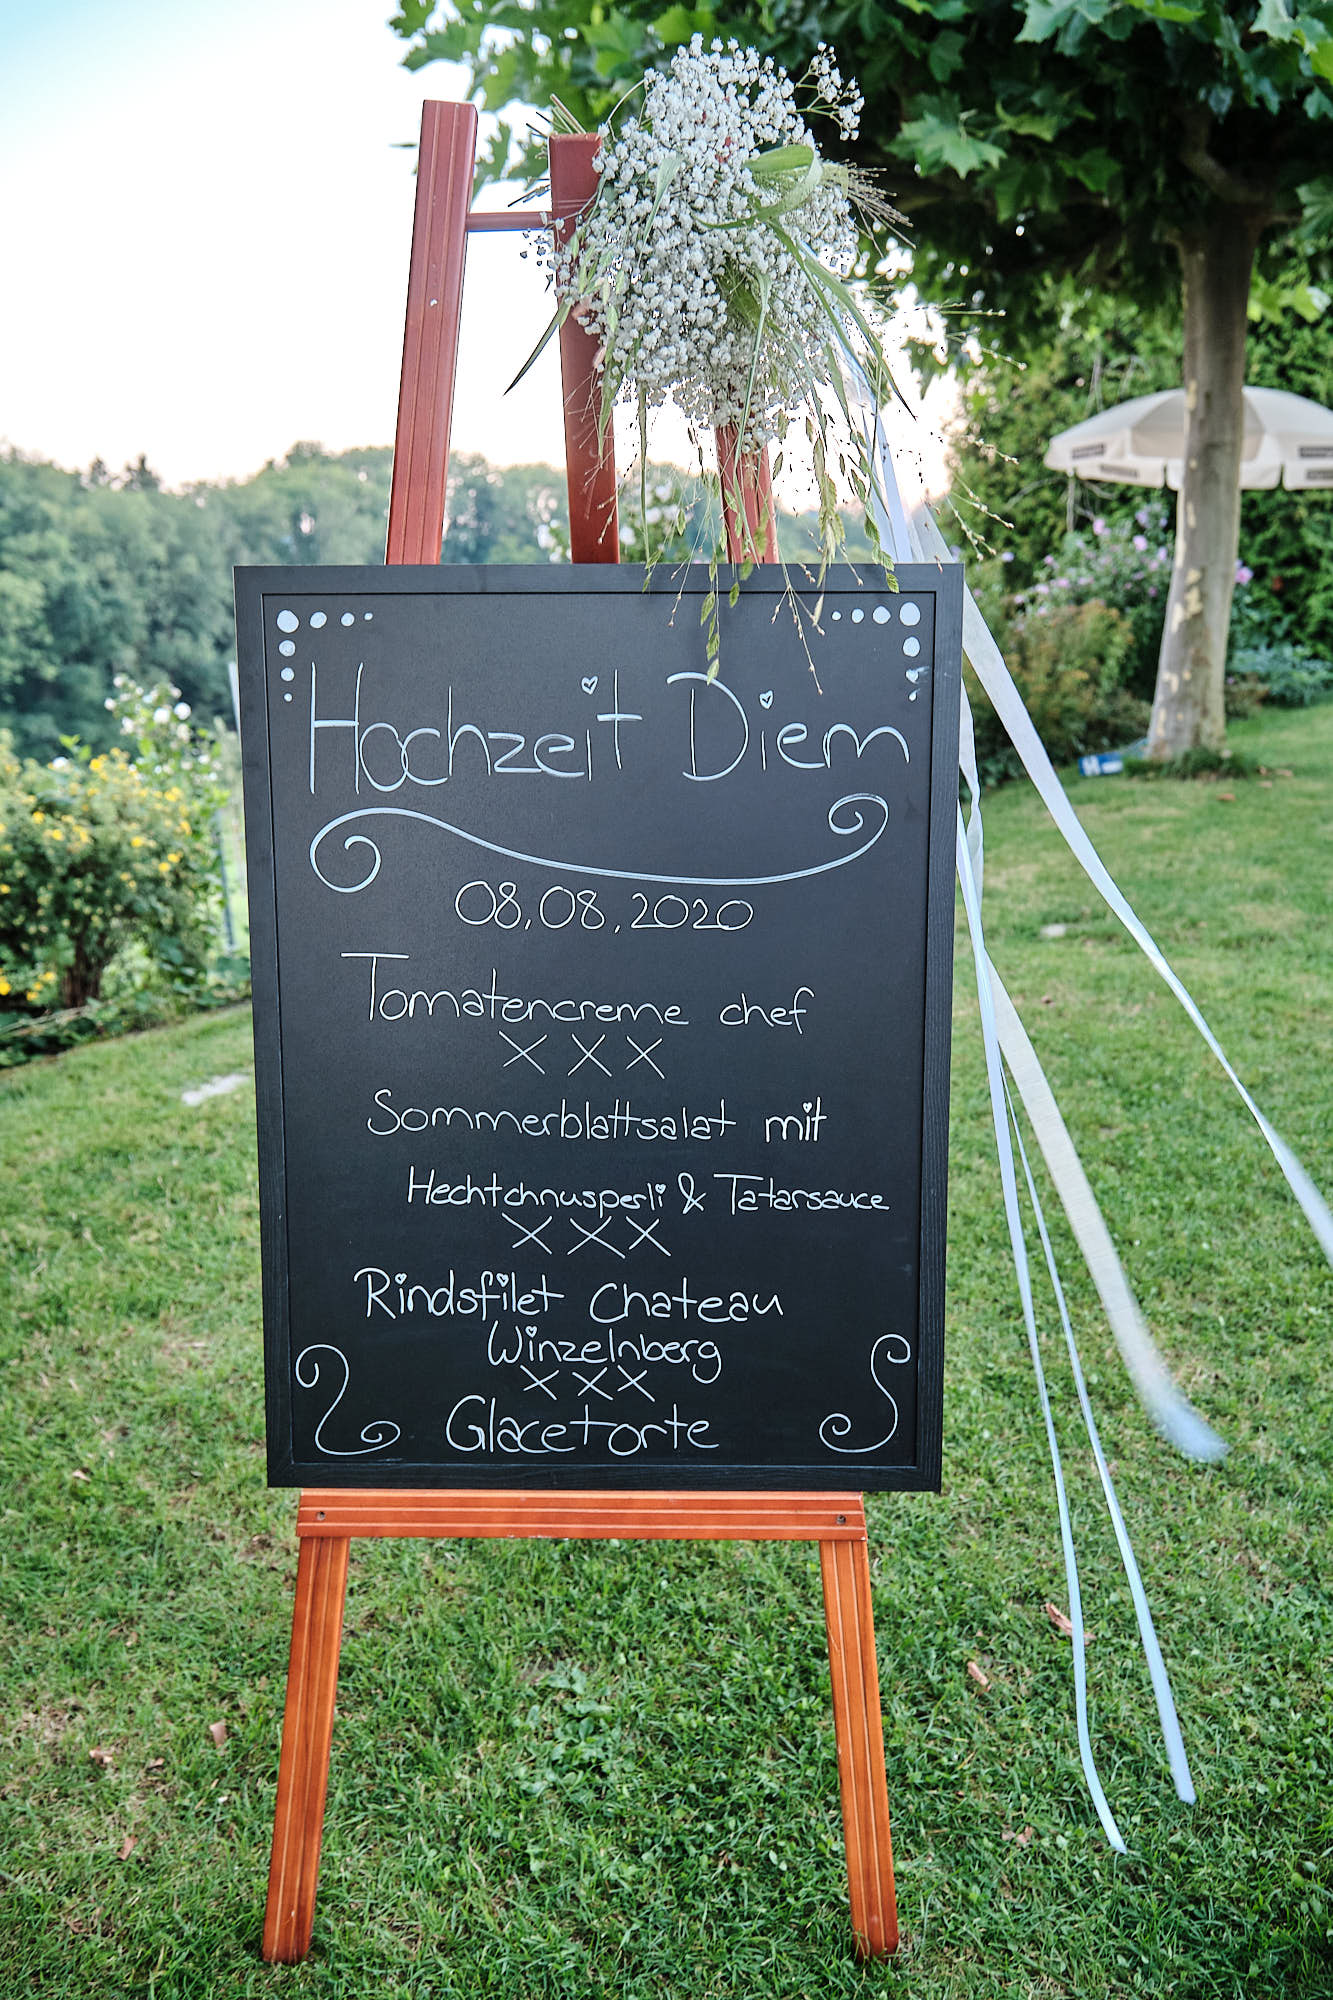 Hochzeit Diem
08.08.2020
Tomatencreme chef
X X X
Sommerblattsalat mit
Hechtchnusperli & Tatarsauce
X X X
Rindsfilet Chateau
Winzelnberg
X X X
Glacetorte